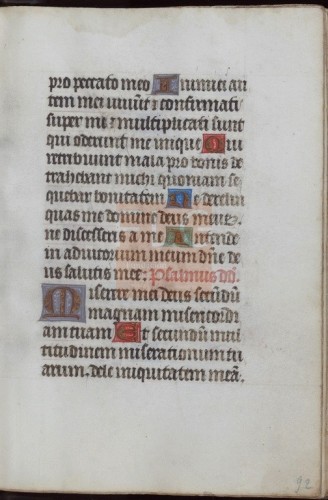 pro peccato meo Inimici au
tem mei uiuūt ⁊ confirmati
super me ⁊ multiplicati sunt
qui oderunt me inique Qui
retribuunt mala pro bonis de
trahebant michi quoniam se
quebar bonitatem Ne derelin
quas me domine deus meus.
ne discesseris a me Intende
in adiutorium meum dn̄e de
us salutis mee: Psalmus dd.
Miserere mei deus secūdū
magnam misericordi
am tuam Et secundū mul
titudinem miserationum tu
arum. dele iniquitatem meā.
92